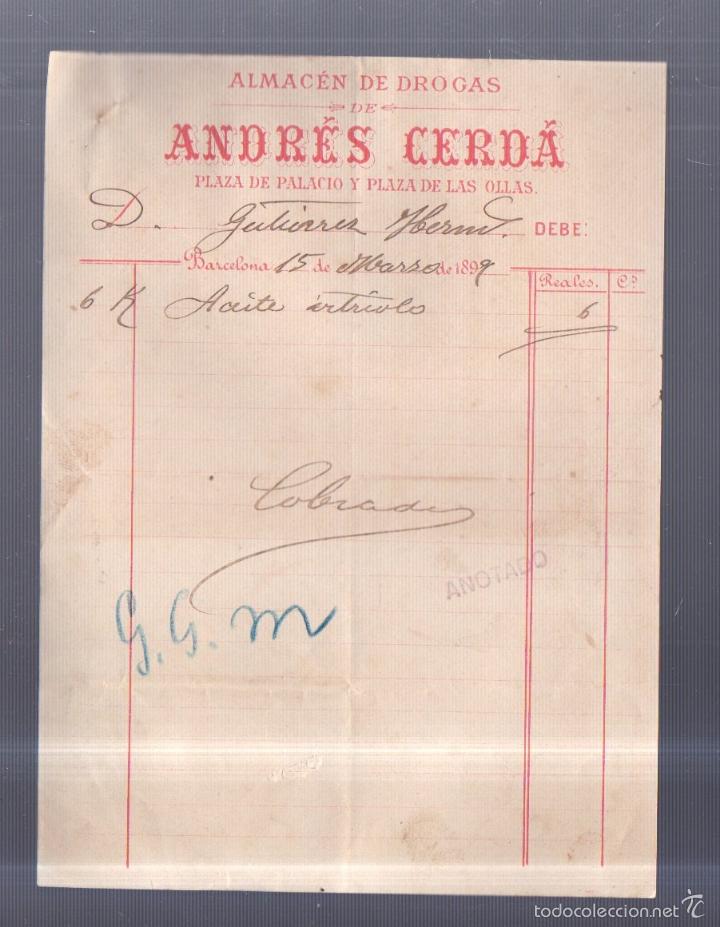 ALMACÉN DE DROGAS
DE
ANDRÉS CERDÁ
PLAZA DE PALACIO Y PLAZA DE LAS OLLAS.
D. Gutierrez Herm.s DEBE:
Barcelona 15 de Marzo de 1899
Reales. C.s
6 K Aceite vitriolo 6
Cobrado
ANOTADO
G. G. m
todocoleccion.net tc